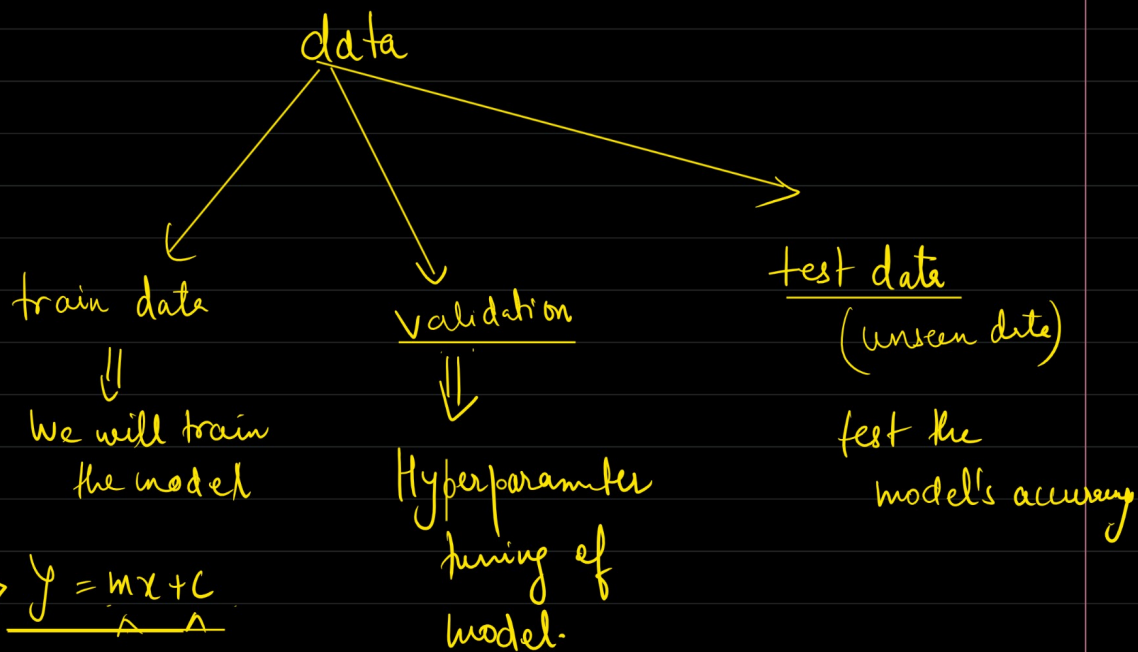 data
train data
We will train
the model
y = mx + c
validation
Hyperparamter
tuning of
model.
test data
(unseen data)
test the
model's accuracy